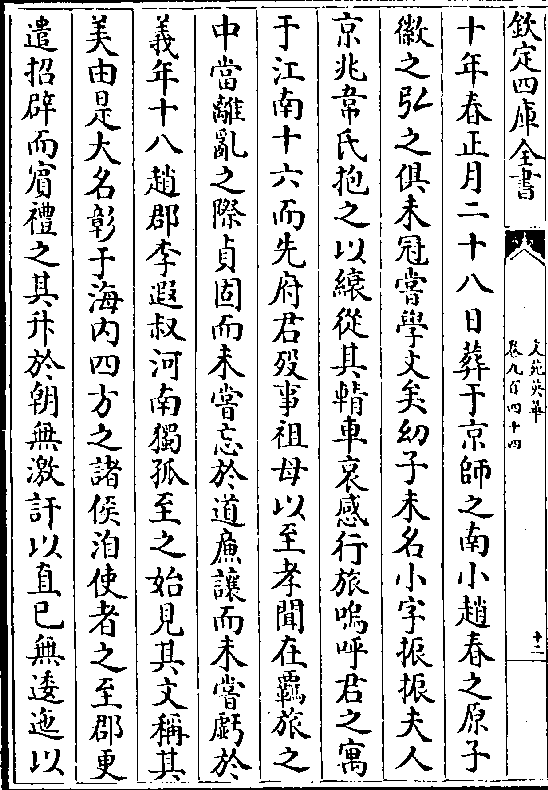 欽定四庫全書
文苑英華
卷九百四十四
十二
十年春正月二十八日葬于京師之南小趙春之原子
徽之弘之俱未冠嘗學文矣幼子未名小字振振夫人
京兆韋氏抱之以縗從其輤車哀感行旅嗚呼君之寓
于江南十六而先府君歿事祖母以至孝聞在羈旅之
中當離亂之際貞固而未嘗忘於道廉讓而未嘗虧於
義年十八趙郡李遐叔河南獨孤至之始見其文稱其
美由是大名彰于海内四方之諸侯洎使者之至郡更
遣招辟而賓禮之其升於朝無激訐以直已無逶迤以